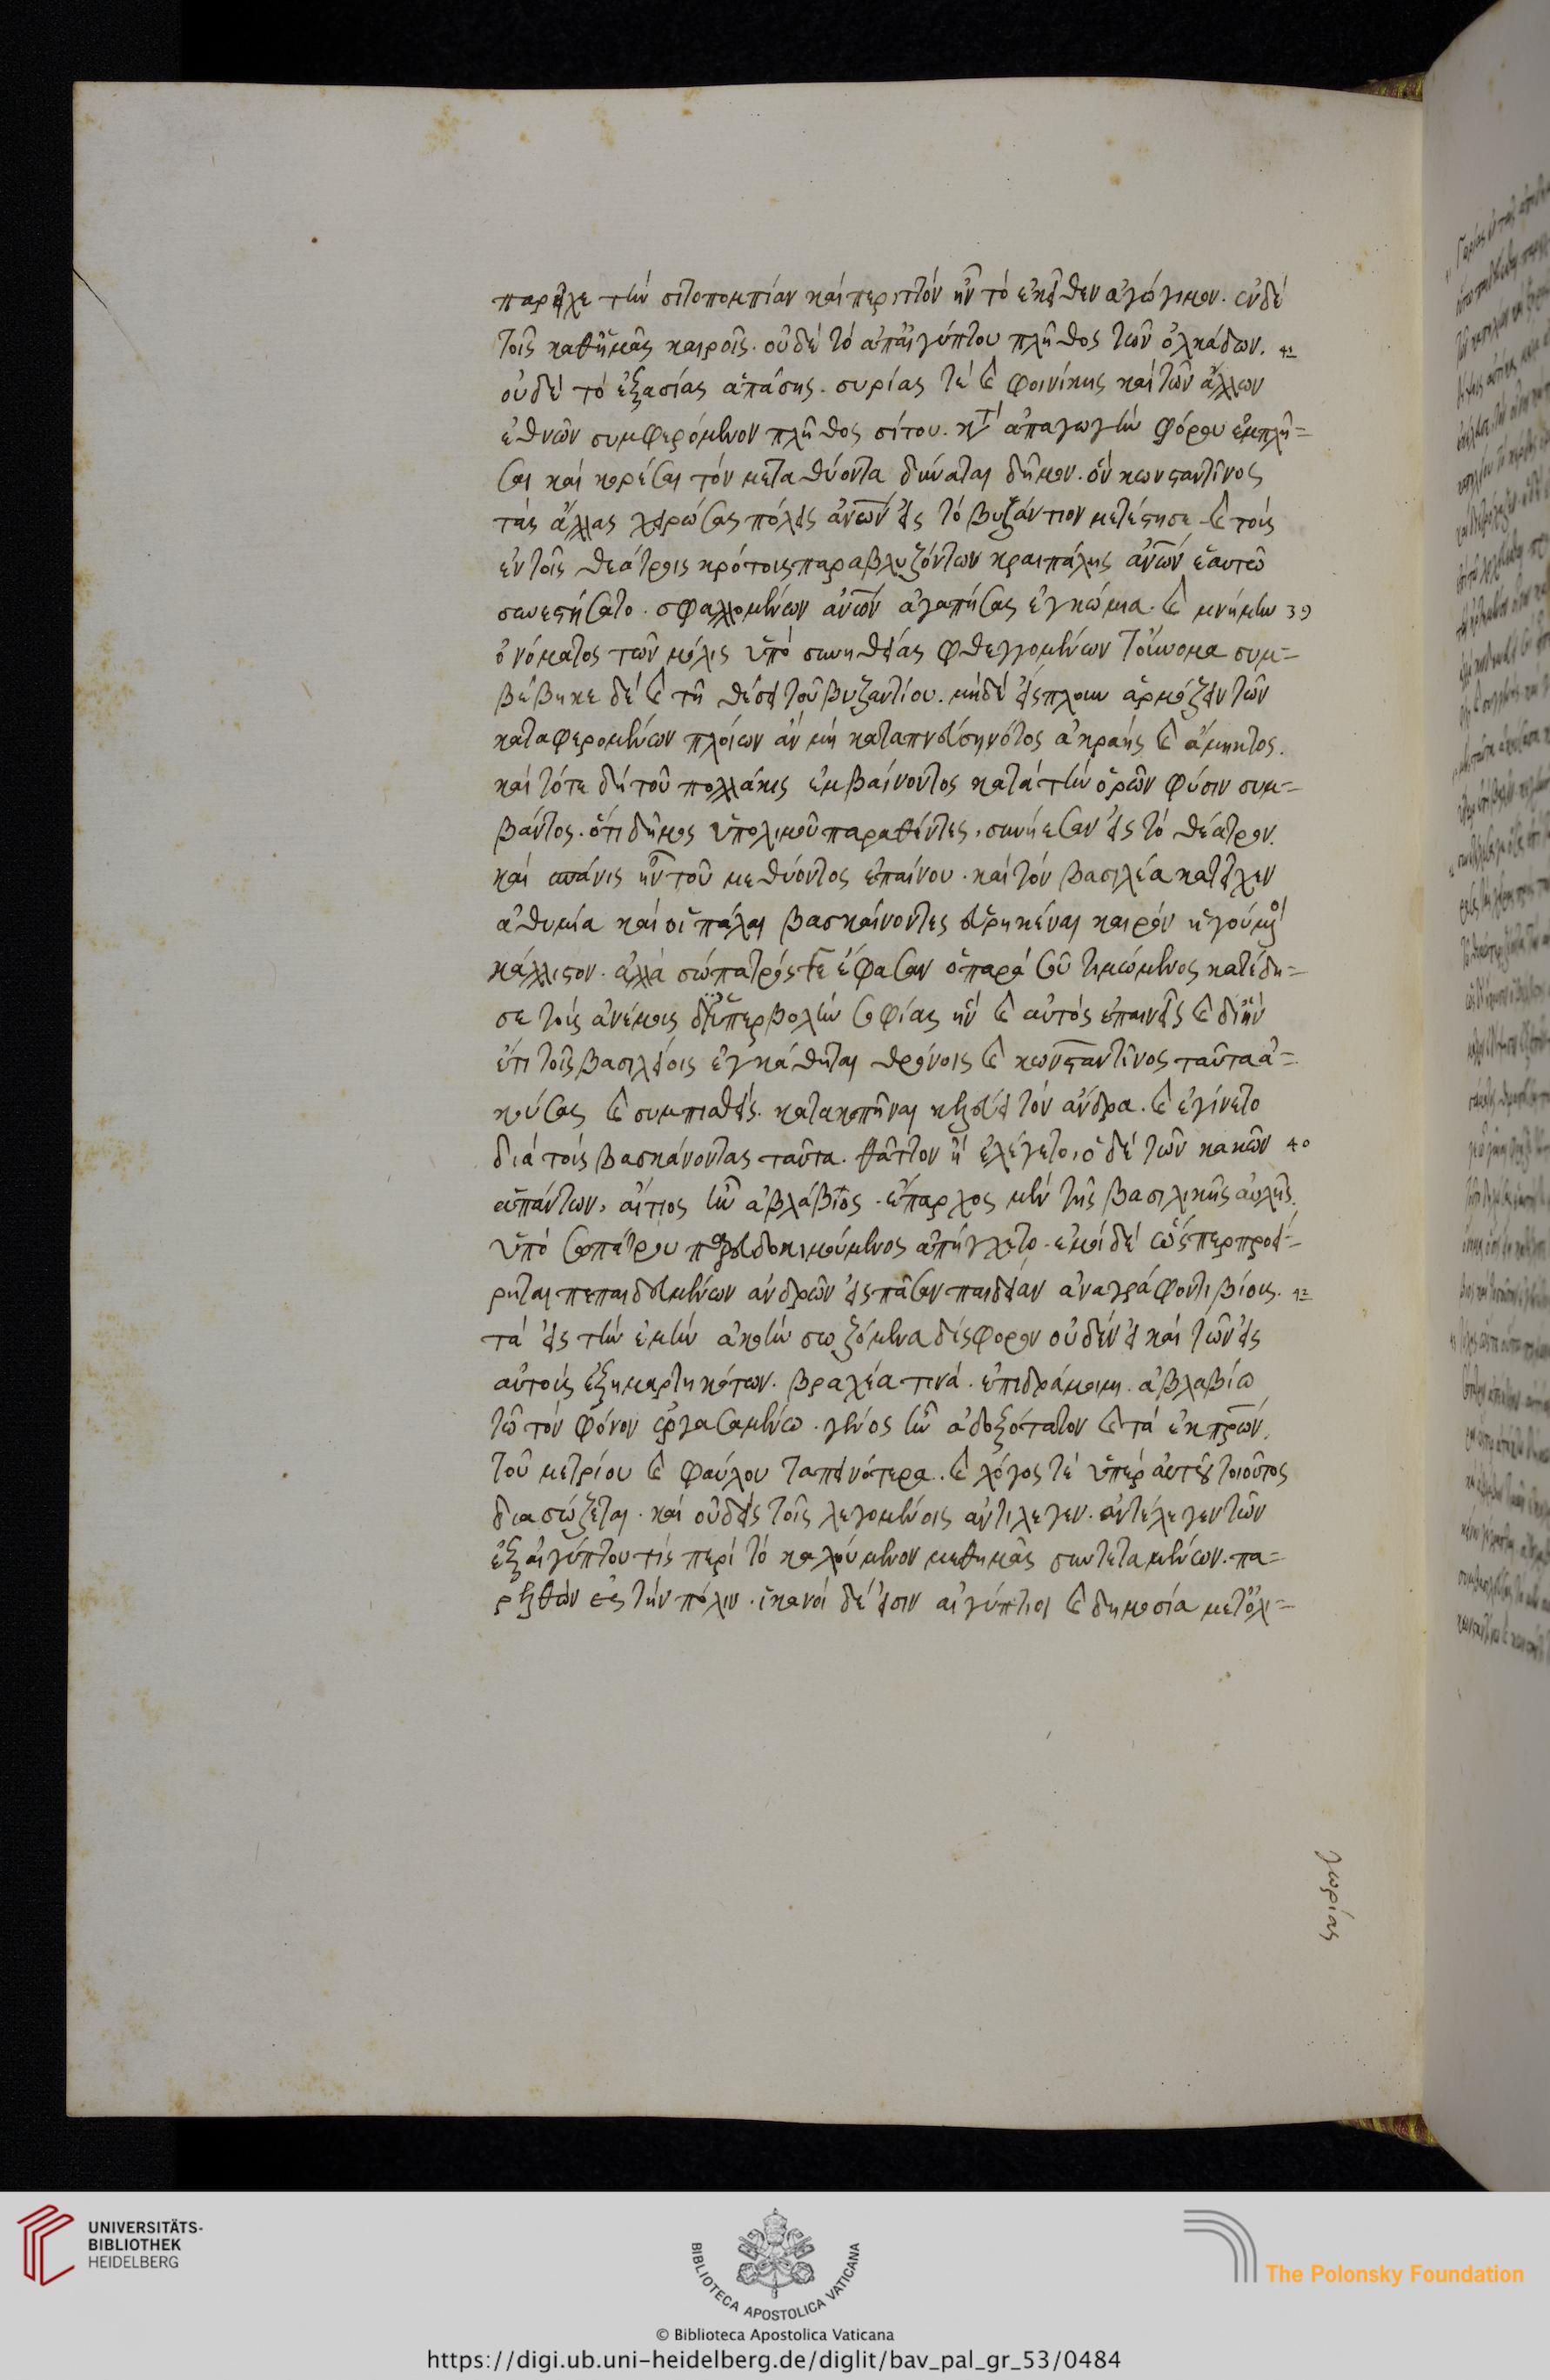 παρεῖχε τὴν σιτοπομπίαν καὶ περιττὸν ἦν τὸ ἐκεῖθεν ἀγώγιμον. οὐδὲ
τοῖς καθἡμᾶς καιροῖς. οὐδὲ τὸ ἀπαἰγύπτου πλῆθος τῶν ὁλκάδων.
οὐδὲ τὸ ἐξασίας ἁπάσης. συρίας τὲ καὶ φοινίκης καὶ τῶν ἄλλων
ἐθνῶν συμφερόμενον πλῆθος σίτου. κατὰ ἀπαγωγὴν φόρου ἐμπλῆ=
σαι καὶ κορέσαι τὸν μεταθύοντα δύναται δῆμον. ὃν κωνσταντῖνος
τὰς ἄλλας χειρώσας πόλεις ἀνῶν εἰς τὸ βυζάντιον μετέστησε καὶ τοὺς
ἐν τοῖς θεάτροις κρότοις παραβλυζόντων κραιπάλης ἀνῶν ἑαυτῶ
συνεστήσατο. σφαλλομένων ἀνῶν ἀγαπήσας ἐγκώμια. καὶ μνήμην 39
ὀνόματος τῶν μόλις ὑπὸ συνηθείας φθεγγομένων τοὔνομα συμ=
βέβηκε δὲ καὶ τῆ θέσει τοῦ βυζαντίου. μηδὲ εἰς πλουν ἁρμόζειν τῶν
καταφερομένων πλοίων ἂν μὴ καταπνεύσηνότος ἀκραὴς καὶ ἄμικτος.
καὶ τότε δὴ τοῦ πολλάκις ἐμβαίνοντος κατὰ τὴν ὁρῶν φύσιν συμ=
βάντος. ὅτι δῆμος ὑπολιμοῦ παραθέντες, συνήεσαν εἰς τὸ θέατρον.
καὶ σπάνις ἦν τοῦ μεθύοντος ἐπαίνου. καὶ τὸν βασιλέα κατεῖχεν
ἀθυμία καὶ οἱ πάλαι βασκαίνοντες εὑρηκέναι καιρὸν ἡγούμενοι
κάλλιστον. ἀλλὰ σώπατρός γε ἔφασαν ὁ παρὰ σοῦ τιμώμενος κατέδη=
σε τοὺς ἀνέμους διὑπερβολὴν σοφίας ἣν καὶ αὐτὸς ἐπαινεῖς καὶ διἣν
ἔτι τοῖς βασιλείοις ἐγκάθηται θρόνοις καὶ κωνσταντῖνος ταῦτα ἀ=
κούσας καὶ συμπιαθείς. κατακοπῆναι κελεύει τὸν ἄνδρα. καὶ ἐγίνετο
διὰ τοὺς βασκάνοντας ταῦτα. θᾶττον ἢ ἐλέγετο, ὁ δὲ τῶν κακῶν 40
ἁπάντων, αἴτιος ἦν ἀβλάβιος. ἔπαρχος μὲν τῆς βασιλικῆς αὐλῆς.
ὑπὸ σωπάτρου παρευδοκιμούμενος ἀπήγχετο. ἐμοὶ δὲ ὥσπερ προεί=
ρηται πεπαιδευμένων ἀνδρῶν εἰς πᾶσαν παιδείαν ἀναγράφοντι βίους.
τὰ εἰς τὴν ἐμὴν ἀκοὴν σωζόμενα δύσφορον οὐδὲν εἰ καὶ τῶν εἰς
αὐτοὺς ἐξημαρτηκότων. βραχέα τινὰ. ἐπιδράμοιμι. ἀβλαβίω
τῶ τὸν φόνον ἐργασαμένω. γένος ἦν ἀδοξότατον καὶ τὰ ἐκ πρῶν.
τοῦ μετρίου καὶ φαύλου ταπεινότερα. καὶ λόγος τὲ ὑπὲρ αὐτοῦ τοιοῦτος
διασώζεται. καὶ οὐδεὶς τοῖς λεγομένοις ἀντιλεγεν. ἀντέλεγεν τῶν
ἐξ αἰγύπτου τίς περὶ τὸ καλούμενον μεθημᾶς συντεταμένων. πα=
ρελθὼν εἰς τὴν πόλιν. ἱκανοὶ δέ εἰσιν αἰγύπτιοι καὶ δημοσία μετὀλ=
γωρίας
UNIVERSITÄTS-
BIBLIOTHEK
HEIDELBERG
BIBLIOTECA APOSTOLICA VATICANA
The Polonsky Foundation
© Biblioteca Apostolica Vaticana
https://digi.ub.uni-heidelberg.de/diglit/bav_pal_gr_53/0484